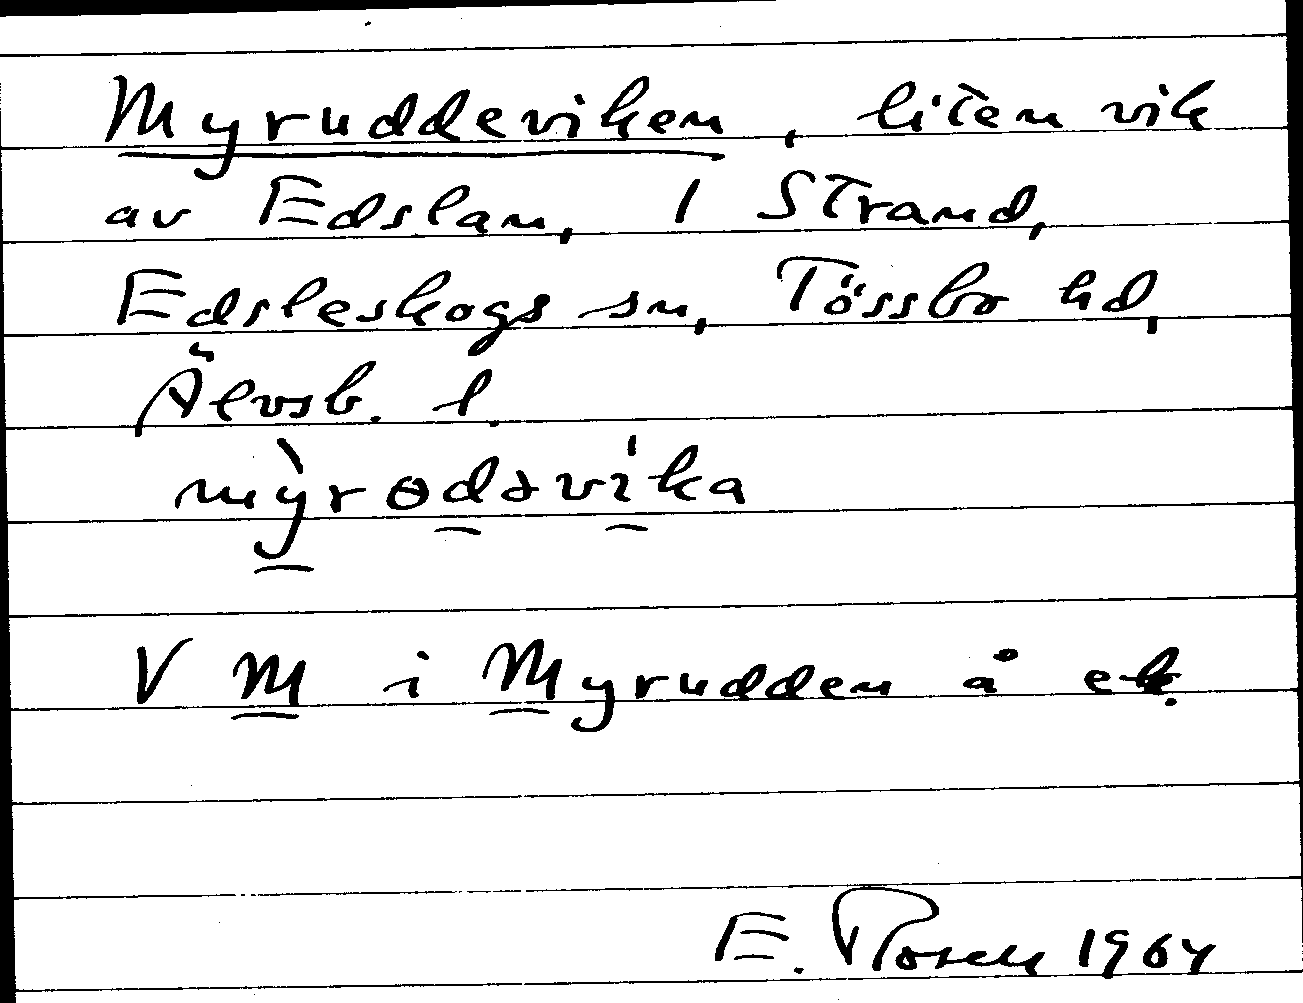 Myruddeviken, liten vik
av Edslan, 1 Strand,
Edsleskogs sn, Tössbo hd,
Älvsb. l.
mỳrɵdəvìka
V M i Myrudden å ek.
E. Rosell 1964